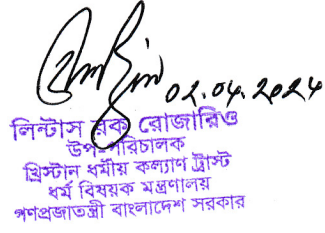 02.04.2024
লিন্টাস রক রোজারিও
উপ-পরিচালক
খ্রিস্টান ধর্মীয় কল্যাণ ট্রাস্ট
ধর্ম বিষয়ক মন্ত্রণালয়
গণপ্রজাতন্ত্রী বাংলাদেশ সরকার